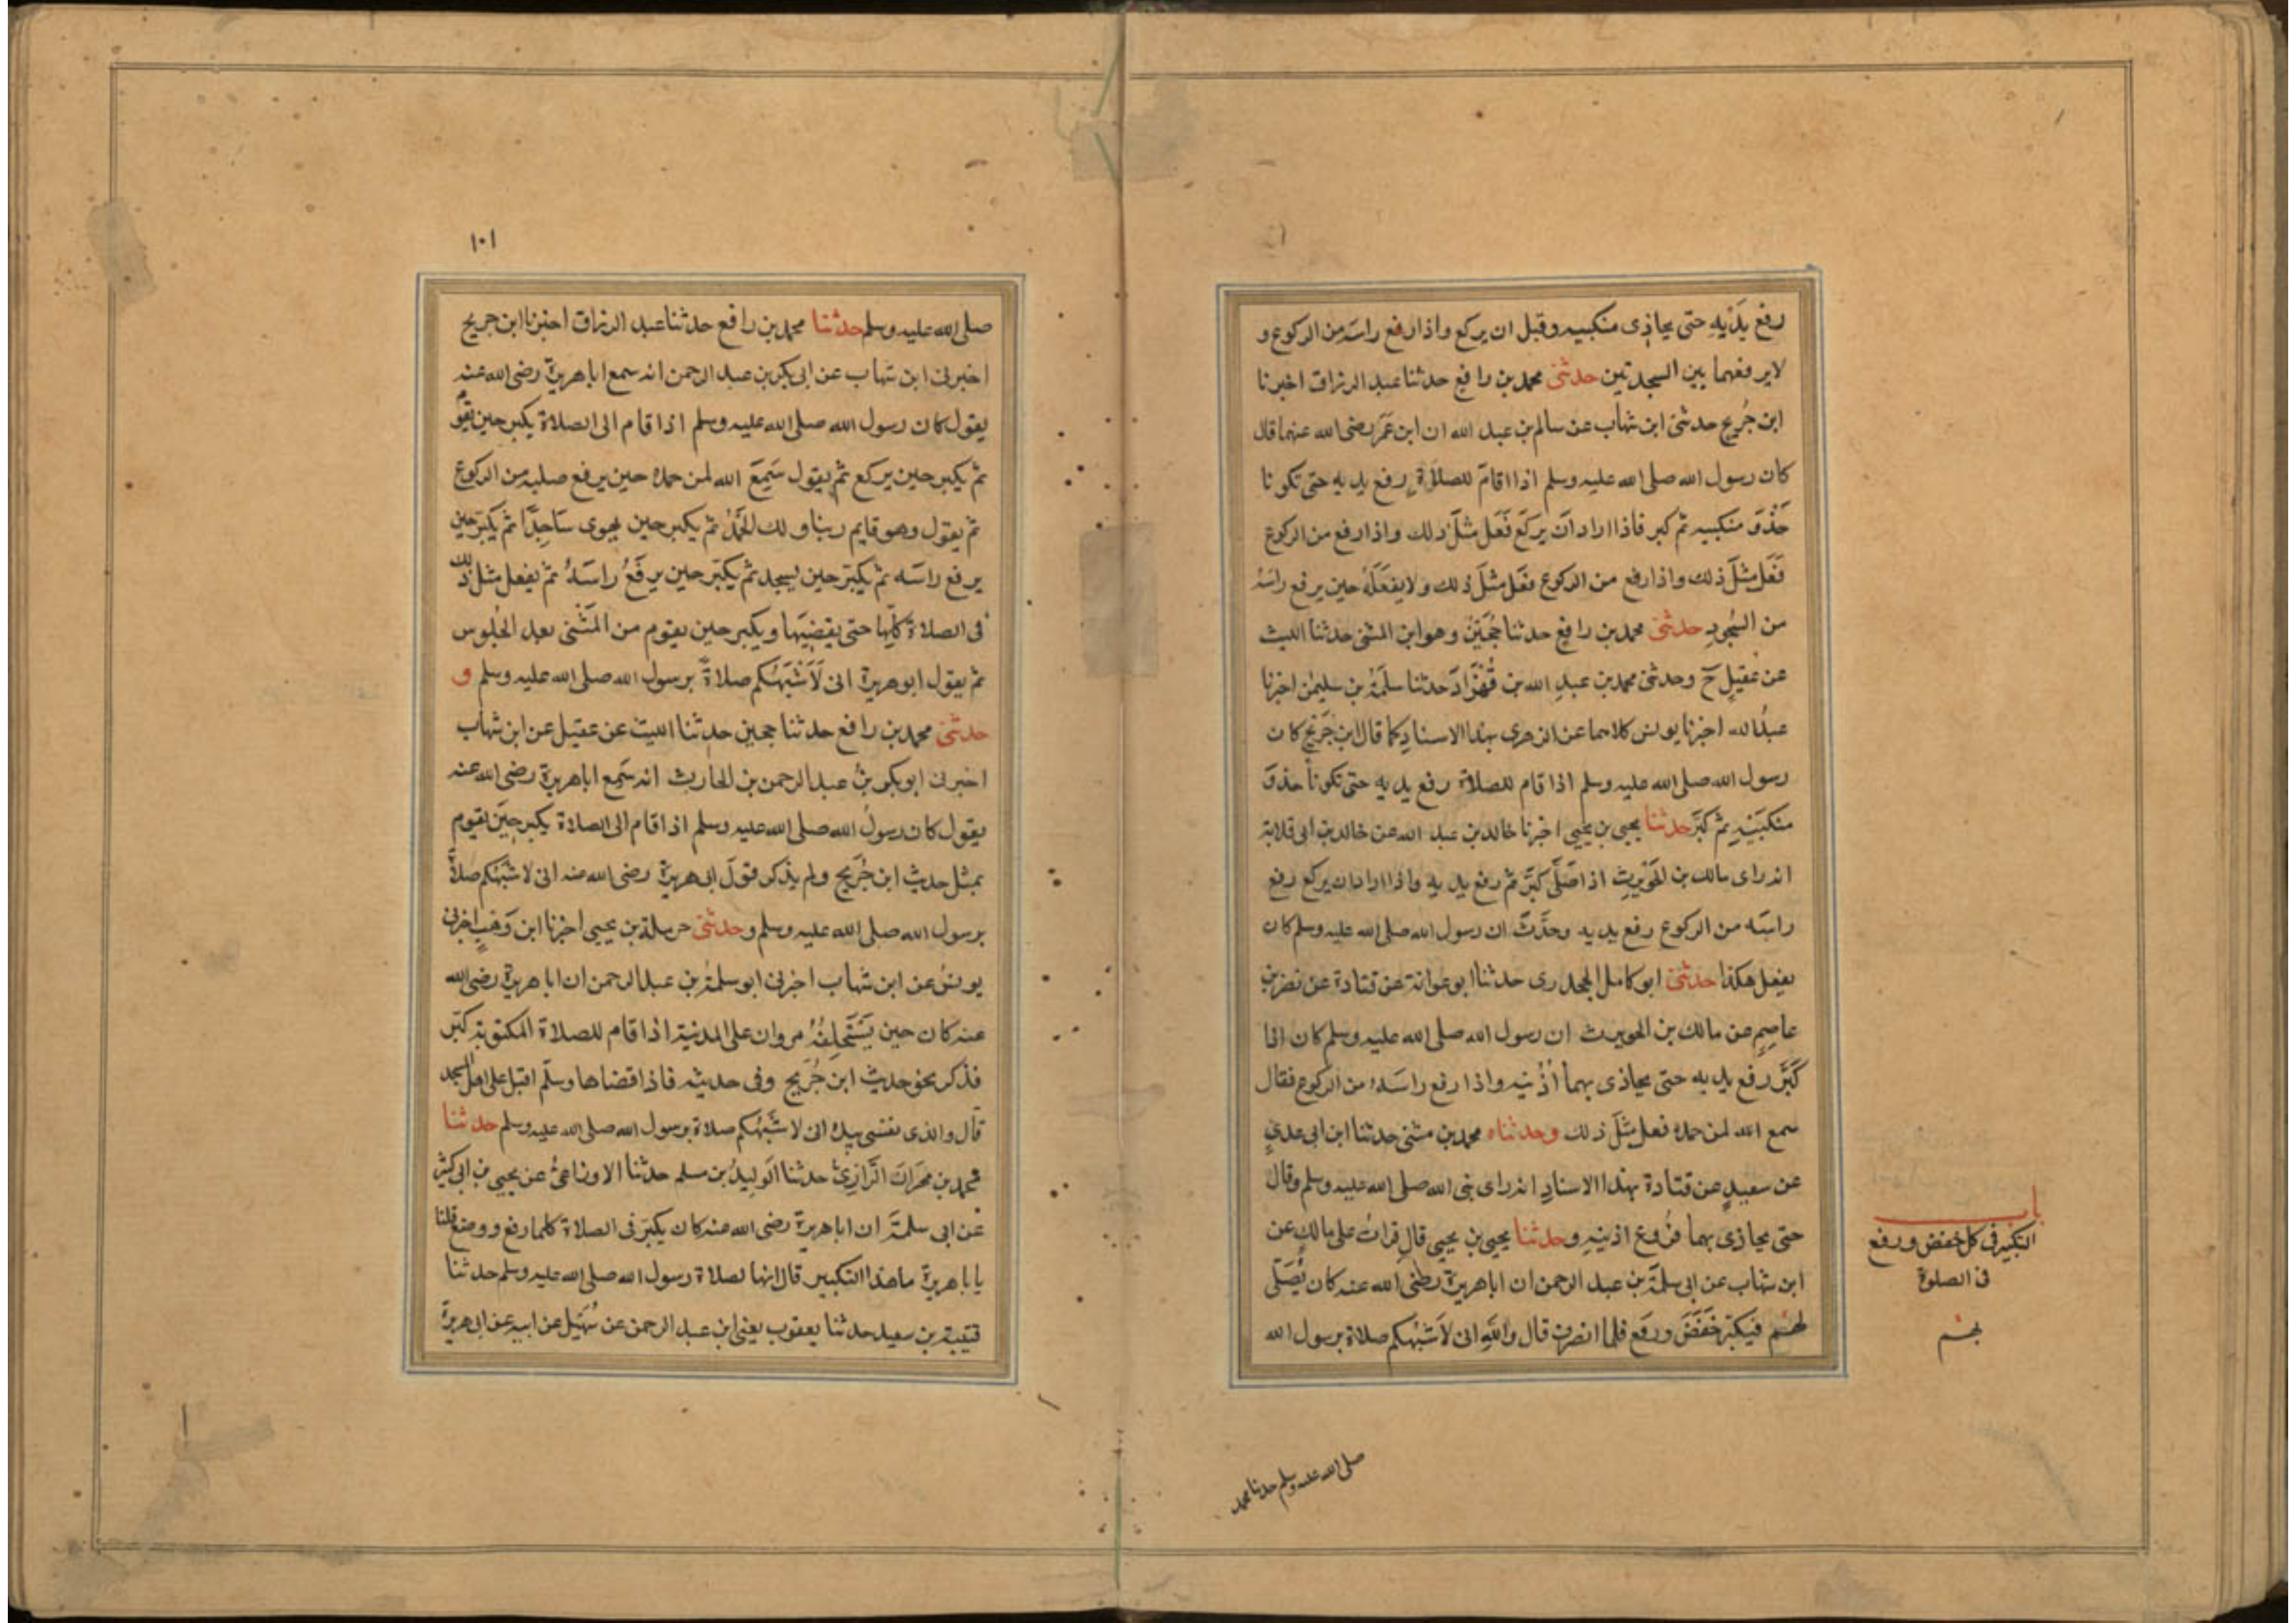 رفع يَدَيْهِ حتى يحاذى منكبيه وقبل ان يركع واذا رفع راسه من الركوع و
لا يرفعهما بين السجدتين حدثنى محمد بن رافع حدثنا عبد الرزاق اخبرنا
ابن جُريج حدثنى ابن شهاب عن سالم بن عبد الله ان ابن عمَر رضى الله عنهما قال
كان رسول الله صلى الله عليه وسلم اذا اقامَ للصلاةِ رفع يديه حتى تكونا
حَذْوَ منكبيه ثم كبر فاذا اراد اَن يركَع فَعَل مثلَ ذلك واذا رفع من الركوع
فَعَل مثلَ ذلك واذا رفع من الركوع فعَل مثلَ ذلك ولا يفعَلهُ حين يرفع راسَهُ
من السُجودِ حدثنى محمد بن رافعٍ حدثنا حُجَيْنٌ وهو ابن المثنى حدثنا الليث
عن عُقيلٍ ح وحدثنى محمد بن عبدِ الله بن قُهْزَادَ حدثنا سلَمَةُ بن سليمٰن اخبرنا
عبدُالله اخبرنا يونس كلاهما عن الزهرى بهذا الاسنادِ كما قال ابن جُرَيْج كان
رسول الله صلى الله عليه وسلم اذا قام للصلاة رفع يديه حتى تكونا حذوَ
منكبَيْهِ ثم كبَّر حدثنا يحيى بن يَحْيى اخبرنا خالد بن عبد الله عن خالد بن ابى قلابة
انه راى مالك بن الحُوَيْرِثِ اذا صَلَّى كبَّر ثم رفع يديه واذا اراد ان يركع رفع
راسَه من الركوع رفع يديه وحَدَّثَ ان رسول الله صلى الله عليه وسلم كان
يفعل هكذا حدثنى ابو كامل الجحدرى حدثنا ابو عوانة عن قتادة عن نصر بن
عاصِمٍ عن مالك بن الحويرث ان رسول الله صلى الله عليه وسلم كان اذا
كَبَّر رفع يديه حتى يحاذى بهما اُذُنيه واذا رفع راسَهُ من الركوع فقال
سمع الله لمن حمده فعل مثلَ ذلك وحدثناه محمد بن مثنى حدثنا ابن ابى عدىٍ
عن سعيدٍ عن قتادة بهذا الاسنادِ انه راى نبى الله صلى الله عليه وسلم وقال
حتى يحاذى بهما فُروع اذنيهِ وحدثنا يحيى بن يحيى قال قرات على مالكٍ عن
ابن شهاب عن ابى سلمَةَ بن عبد الرحمن ان اباهريرة رضى الله عنه كان يُصَلّى
لهم فيكبّر خَفَضَ ورفَع فلما انصرف قال واللهِ انى لاَشبَهُكم صلاة برسول الله
باب
التكبير فى كل خفض ورفع
فى الصلوة
بهم
صلى الله عليه وسلم حدثنا محمد
١٠١
صلى الله عليه وسلم حدثنا محمد بن رافع حدثنا عبد الرزاق اخبرنا ابن جريج
اخبرنى ابن شهاب عن ابى بكر بن عبد الرحمن انه سمع اباهريرة رضى الله عنه
يقول كان رسول الله صلى الله عليه وسلم اذا قام الى الصلاة يكبر حين يقوم
ثم يكبر حين يركع ثم يقول سَمِعَ الله لمن حمده حين يرفع صلبه من الركوع
ثم يقول وهو قايم ربنا ولك الحَمْدُ ثم يكبر حين يهوى سَاجِدًا ثم يكَبّر حين
يرفع راسَه ثم يكبّر حين يسجد ثم يكبّر حين يرفَعُ راسَهُ ثم يفعل مثلَ ذلك
فى الصلاة كُلّها حتى يقضِيَها ويكبر حين يقوم من المَثْنى بعد الجُلوس
ثم يقول ابوهريرة انى لَاَشْبَهُكم صلاةً برسول الله صلى الله عليه وسلم و
حدثنى محمد بن رافع حدثنا حجين حدثنا الليث عن عقيل عن ابن شهاب
اخبرنى ابوبكر بنُ عبدالرحمن بن الحارث انه سَمِع اباهريرة رضى الله عنه
يقول كان رسولُ الله صلى الله عليه وسلم اذا قام الى الصلاة يكبر حِينَ يقوم
بمثل حديث ابن جُرَيج ولم يذكر قولَ ابى هريرة رضى الله عنه انى لاشبَهُكم صلاةً
برسول الله صلى الله عليه وسلم وحدثنى حرملة بن يحيى اخبرنا ابن وَهْبٍ اخبرنى
يونسُ عن ابن شهاب اخبرنى ابو سلمَةَ بن عبدالرحمن ان اباهريرة رضى الله
عنه كان حين يَسْتَخلِفُهُ مروان على المدينة اذا قام للصلاة المكتوبة كبّر
فذكر نحو حديث ابن جُرَيج وفى حديثه فاذا قضاها وسلّم اقبل على اهل المسجد
قال والذى نفسى بيده انى لاشَبَهُكم صلاة برسول الله صلى الله عليه وسلم حدثنا
محمد بن مِهرَان الرَّازِىُّ حدثنا الَولِيدُ بن مسلم حدثنا الاوزاعىُّ عن يحيى بن ابى كثير
عن ابى سلَمَةَ ان اباهريرة رضى الله عنه كان يكبّر فى الصلاة كلما رفع ووضع قلنا
يا اباهريرة ماهذا التكبير قال انها لصلاة رسول الله صلى الله عليه وسلم حدثنا
قتيبة بن سعيد حدثنا يعقوب يعنى ابن عبد الرحمن عن سُهَيل عن ابيه عن ابى هريرة